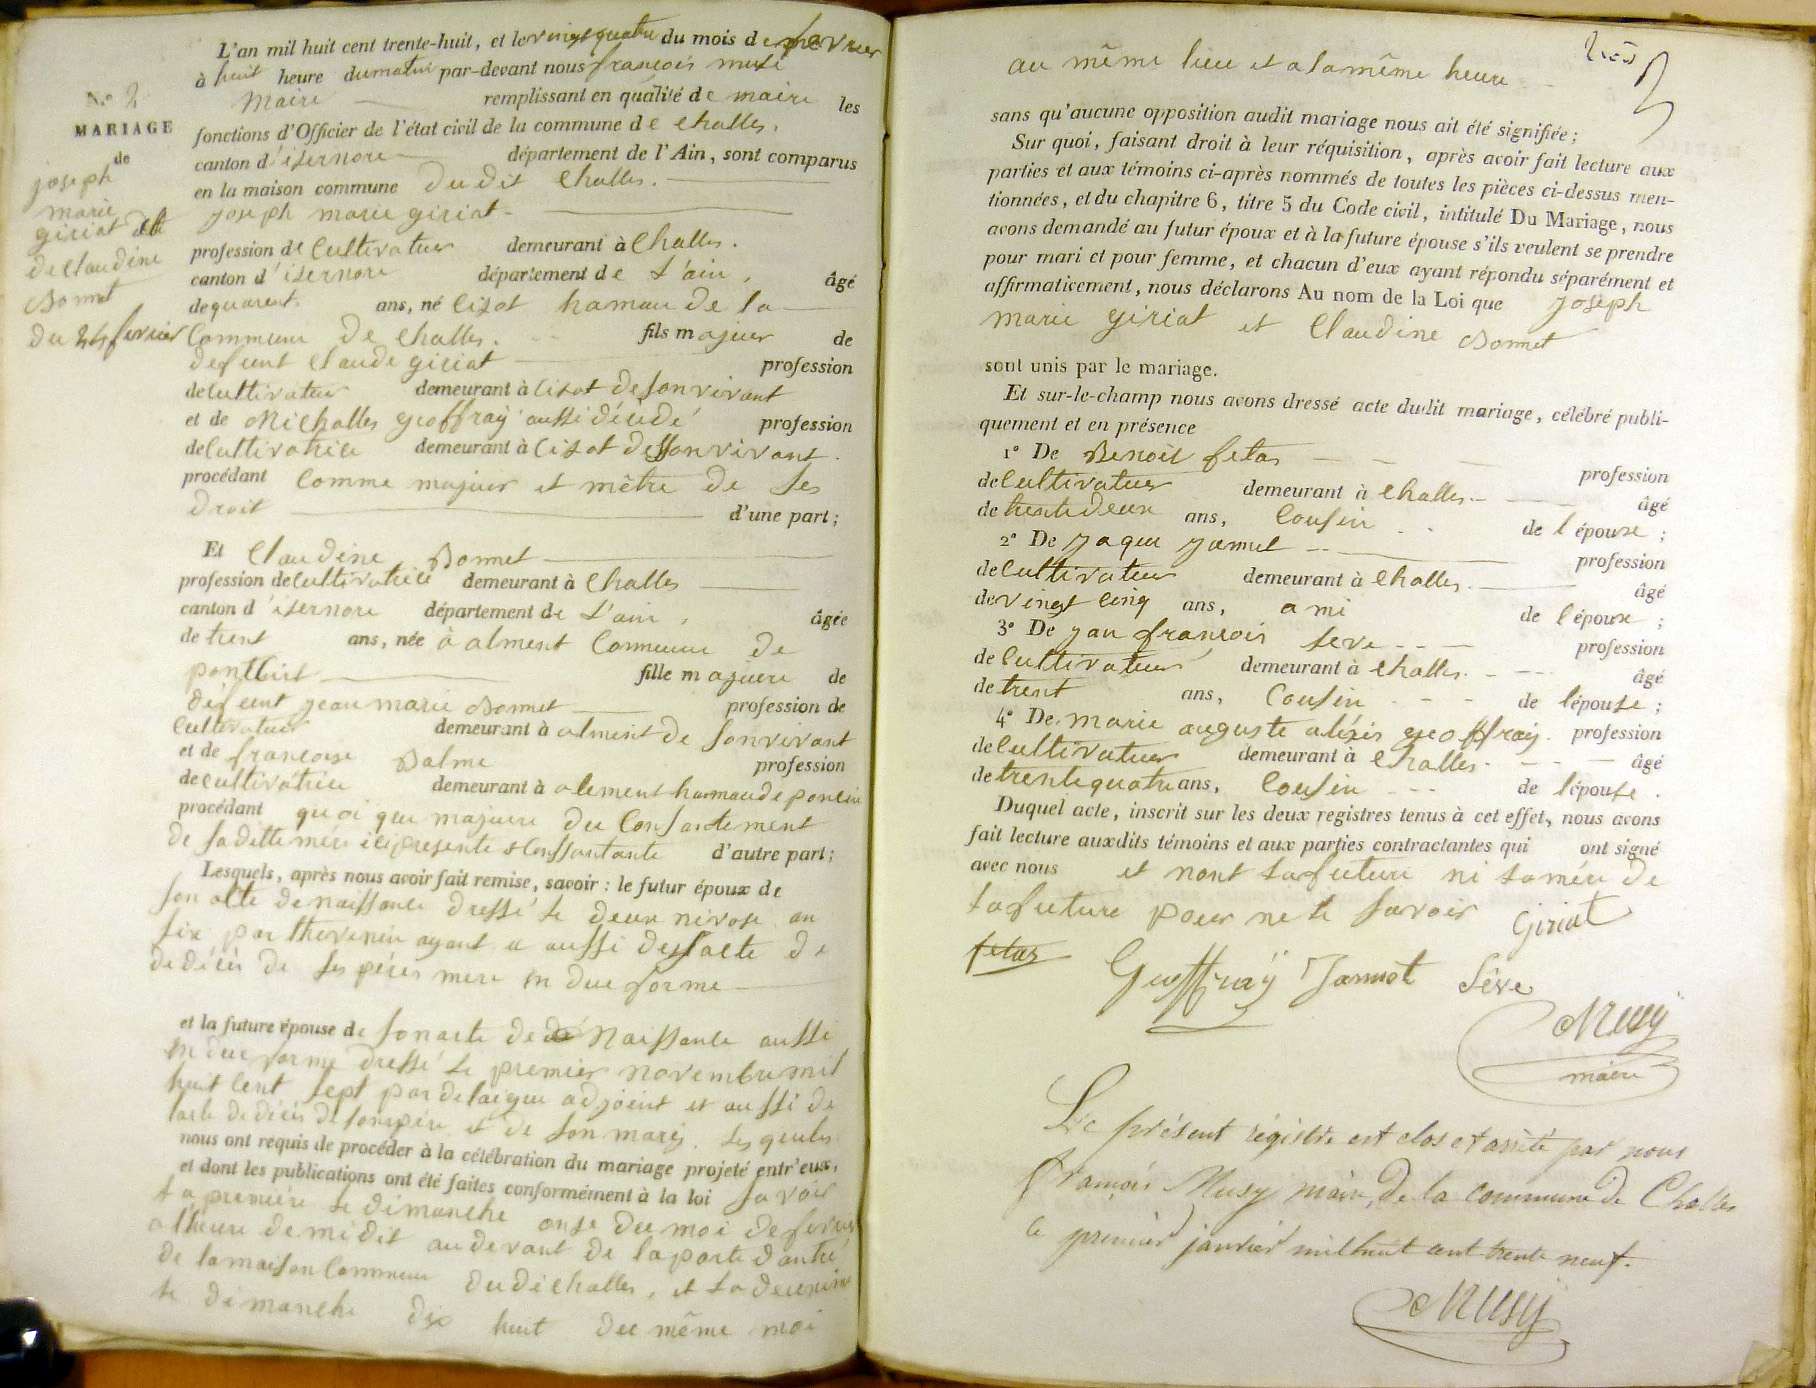 L'an mil huit cent trente-huit, et le vingt quatre du mois de fevrier
à huit heure du matin par-devant nous françois musi
N.º 2
Maire remplissant en qualité de maire les
MARIAGE
fonctions d'Officier de l'état civil de la commune de Challes,
de
canton d'isernore département de l'Ain, sont comparus
joseph
en la maison commune dudit Challes.
marie
joseph marie giriat
giriat et
profession de Cultivateur demeurant à Challes.
de Claudine
canton d'isernore département de L'ain, âgé
Bonnet
de quarent ans, né Cizot hamau de la
du 24 fevrier
Commune de Challes. fils majeur de
defunt Claude giriat profession
de Cultivateur demeurant à Cizot de son vivant
et de Michalles geoffray aussi décédé profession
de Cultivatrice demeurant à Cizot de son vivant.
procédant Comme majeur et mètre de ses
droit d'une part;
Et Claudine Bonnet
profession de Cultivatrice demeurant à Challes
canton d'isernore département de L'ain, âgée
de trent ans, née à alment Commune de
fille majeure de
défunt jean marie Bonnet profession de
Cultivateur demeurant à alment de son vivant
et de francoise Balme profession
de cultivatrice demeurant à alement hamau de poncin
procédant quoi que majeure du Consantement
de sa ditte mère ici presente d'autre part;
Lesquels, après nous avoir fait remise, savoir: le futur époux de
son acte de naissance dressé le deux nivose an
six par thevenin ayant aussi de l'acte de
de décès de ses pères mere en due forme
et la future épouse de son acte de Naissance aussi
en due forme dressé le premier novembre mil
huit Cent sept par delaigue adjoint et aussi de
l'acte de décès de son père et de son marij. Lesquels
nous ont requis de procéder à la célébration du mariage projeté entr'eux,
et dont les publications ont été faites conformément à la loi savoir
la première le dimanche onse du moi de fevrier
a l'heure de midit au devant de la porte d'antré
de la maison Commune dudi Challes, et la deuxième
le dimanche dix huit du même moi
au même lieu et a la même heure
sans qu'aucune opposition audit mariage nous ait été signifiée;
Sur quoi, faisant droit à leur réquisition, après avoir fait lecture aux
parties et aux témoins ci-après nommés de toutes les pièces ci-dessus men-
tionnées, et du chapitre 6, titre 5 du Code civil, intitulé Du Mariage, nous
avons demandé au futur époux et à la future épouse s'ils veulent se prendre
pour mari et pour femme, et chacun d'eux ayant répondu séparément et
affirmativement, nous déclarons Au nom de la Loi que joseph
marie giriat et Claudine Bonnet
sont unis par le mariage.
Et sur-le-champ nous avons dressé acte dudit mariage, célébré publi-
quement et en présence
1º De Benoit fetas profession
de Cultivateur demeurant à Challes âgé
de trente deux ans, Cousin de l'épouse;
2º De jaque jannet profession
de Cultivateur demeurant à Challes. âgé
de vingt Cinq ans, ami de l'épouse;
3º De jan françois seve profession
de Cultivateur demeurant à Challes. âgé
de trent ans, Cousin de l'épouse;
4º De marie auguste alixis geoffray. profession
de Cultivateur demeurant à Challes. âgé
de trente quatre ans, Cousin de l'épouse.
Duquel acte, inscrit sur les deux registres tenus à cet effet, nous avons
fait lecture auxdits témoins et aux parties contractantes qui ont signé
avec nous et nont la future ni la mère de
la future pour ne le savoir Giriat
fetas Geoffray Jannet Sêve
Musy
maire
Le présent régistre est clos et arrêté par nous
françois Musy maire, de la commune de Challes
ce premier janvier mil huit cent trente neuf.
Musy